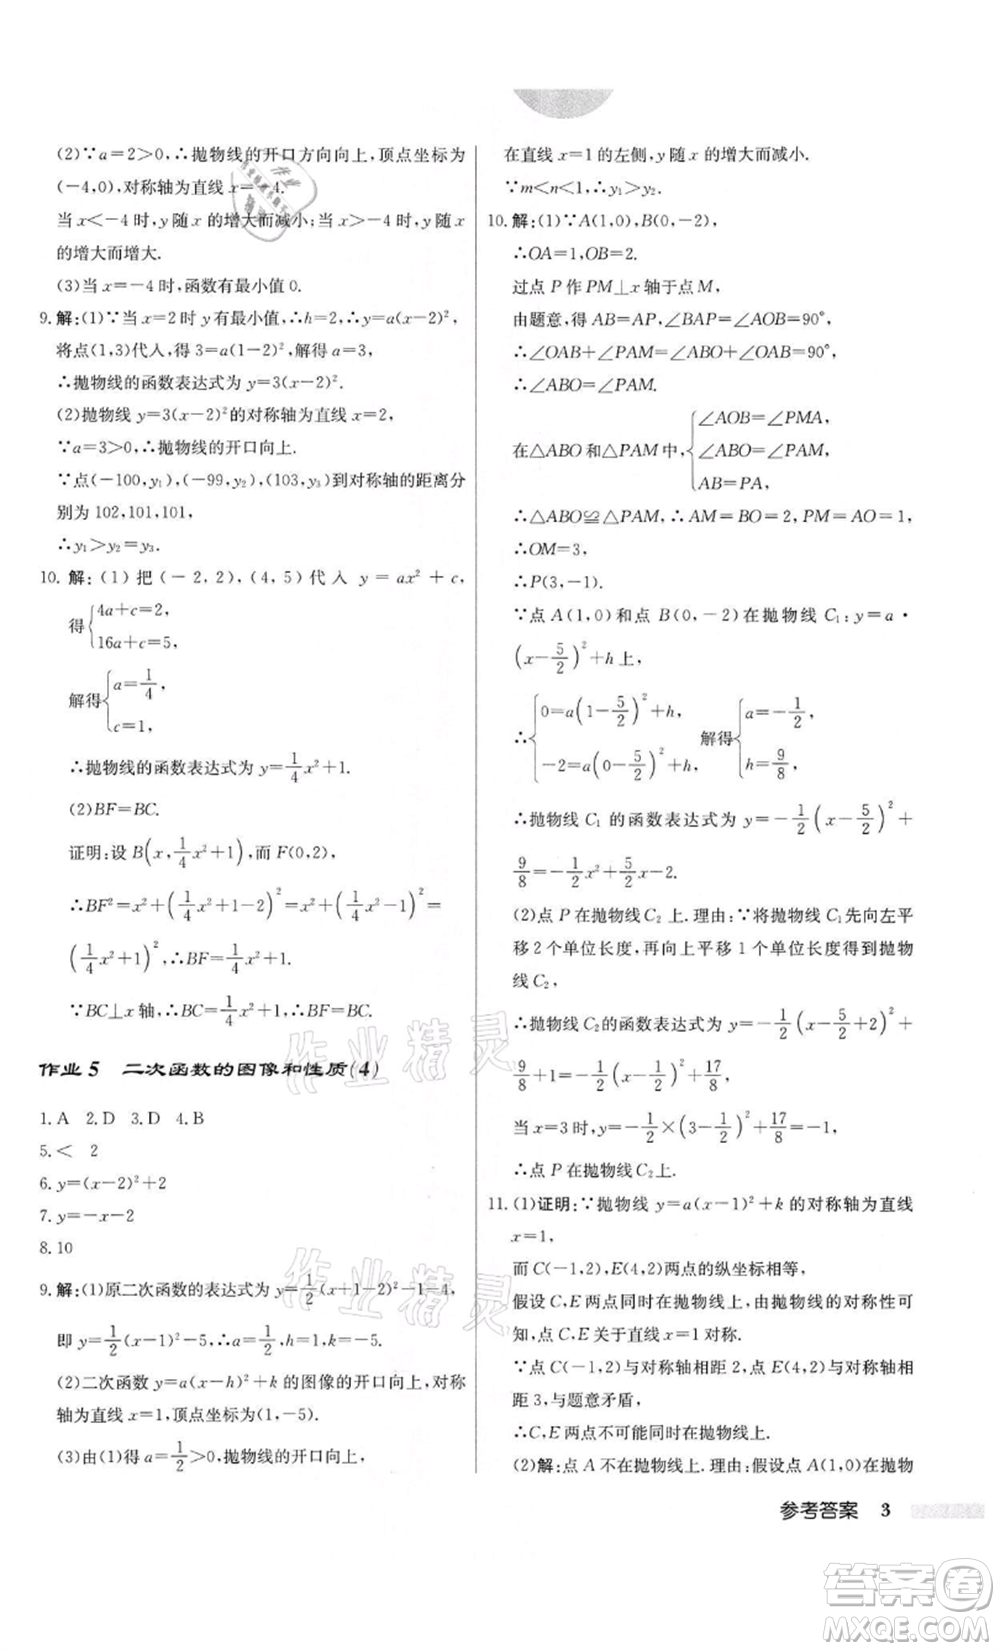 (2)∵a=2>0,∴抛物线的开口方向向上,顶点坐标为
(-4,0),对称轴为直线 x=-4.
当 x<-4 时,y 随 x 的增大而减小;当 x>-4 时,y 随 x
的增大而增大.
(3)当 x=-4 时,函数有最小值 0.
9. 解:(1)∵当 x=2 时 y 有最小值,∴h=2,∴y=a(x-2)²,
将点(1,3)代人,得 3=a(1-2)²,解得 a=3,
∴抛物线的函数表达式为 y=3(x-2)².
(2)抛物线 y=3(x-2)²的对称轴为直线 x=2,
∵a=3>0,∴抛物线的开口向上.
∵点(-100,y₁),(-99,y₂),(103,y₃)到对称轴的距离分
别为 102,101,101,
∴y₁>y₂=y₃.
10. 解:(1)把(-2,2),(4,5)代入 y=ax²+c,
得{4a+c=2,
16a+c=5,
解得{a=1/4,
c=1,
∴抛物线的函数表达式为 y=1/4x²+1.
(2)BF=BC.
证明:设 B(x,1/4x²+1),而 F(0,2),
∴BF²=x²+(1/4x²+1-2)²=x²+(1/4x²-1)²=
(1/4x²+1)²,∴BF=1/4x²+1.
∵BC⊥x 轴,∴BC=1/4x²+1,∴BF=BC.
作业 5 二次函数的图像和性质(4)
1.A 2.D 3.D 4.B
5.< 2
6.y=(x-2)²+2
7.y=-x-2
8.10
9. 解:(1)原二次函数的表达式为 y=1/2(x+1-2)²-1-4,
即 y=1/2(x-1)²-5,∴a=1/2,h=1,k=-5.
(2)二次函数 y=a(x-h)²+k 的图像的开口向上,对称
轴为直线 x=1,顶点坐标为(1,-5).
(3)由(1)得 a=1/2>0,抛物线的开口向上,
在直线 x=1 的左侧,y 随 x 的增大而减小.
∵m<n<1,∴y₁>y₂.
10. 解:(1)∵A(1,0),B(0,-2),
∴OA=1,OB=2.
过点 P 作 PM⊥x 轴于点 M,
由题意,得 AB=AP,∠BAP=90°,
∴∠OAB+∠PAM=∠ABO+∠OAB=90°,
∴∠ABO=∠PAM.
在△ABO 和△PAM 中,{∠AOB=∠PMA,
∠ABO=∠PAM,
AB=PA,
∴△ABO≌△PAM,∴AM=BO=2,PM=AO=1,
∴OM=3,
∴P(3,-1).
∵点 A(1,0)和点 B(0,-2)在抛物线 C₁:y=a·
(x-5/2)²+h 上,
∴{0=a(1-5/2)²+h,
-2=a(0-5/2)²+h,
解得{a=-1/2,
h=9/8,
∴抛物线 C₁ 的函数表达式为 y=-1/2(x-5/2)²+
9/8=-1/2x²+5/2x-2.
(2)点 P 在抛物线 C₂ 上.理由:∵将抛物线 C₁先向左平
移 2 个单位长度,再向上平移 1 个单位长度得到抛物
线 C₂,
∴抛物线 C₂的函数表达式为 y=-1/2(x-5/2+2)²+
9/8+1=-1/2(x-1/2)²+17/8.
当 x=3 时,y=-1/2×(3-1/2)²+17/8=-1,
∴点 P 在抛物线 C₂上.
11. (1)证明:∵抛物线 y=a(x-1)²+k 的对称轴为直线
x=1,
而 C(-1,2),E(4,2)两点的纵坐标相等,
假设 C,E 两点同时在抛物线上,由抛物线的对称性可
知,C,E 关于直线 x=1 对称.
∵点 C(-1,2)与对称轴相距 2,点 E(4,2)与对称轴相
距 3,与题意矛盾,
∴C,E 两点不可能同时在抛物线上.
(2)解:点 A 不在抛物线上.理由:假设点 A(1,0)在抛物
参考答案 3
作业精灵
作业精灵
答案圈
MXQE.COM